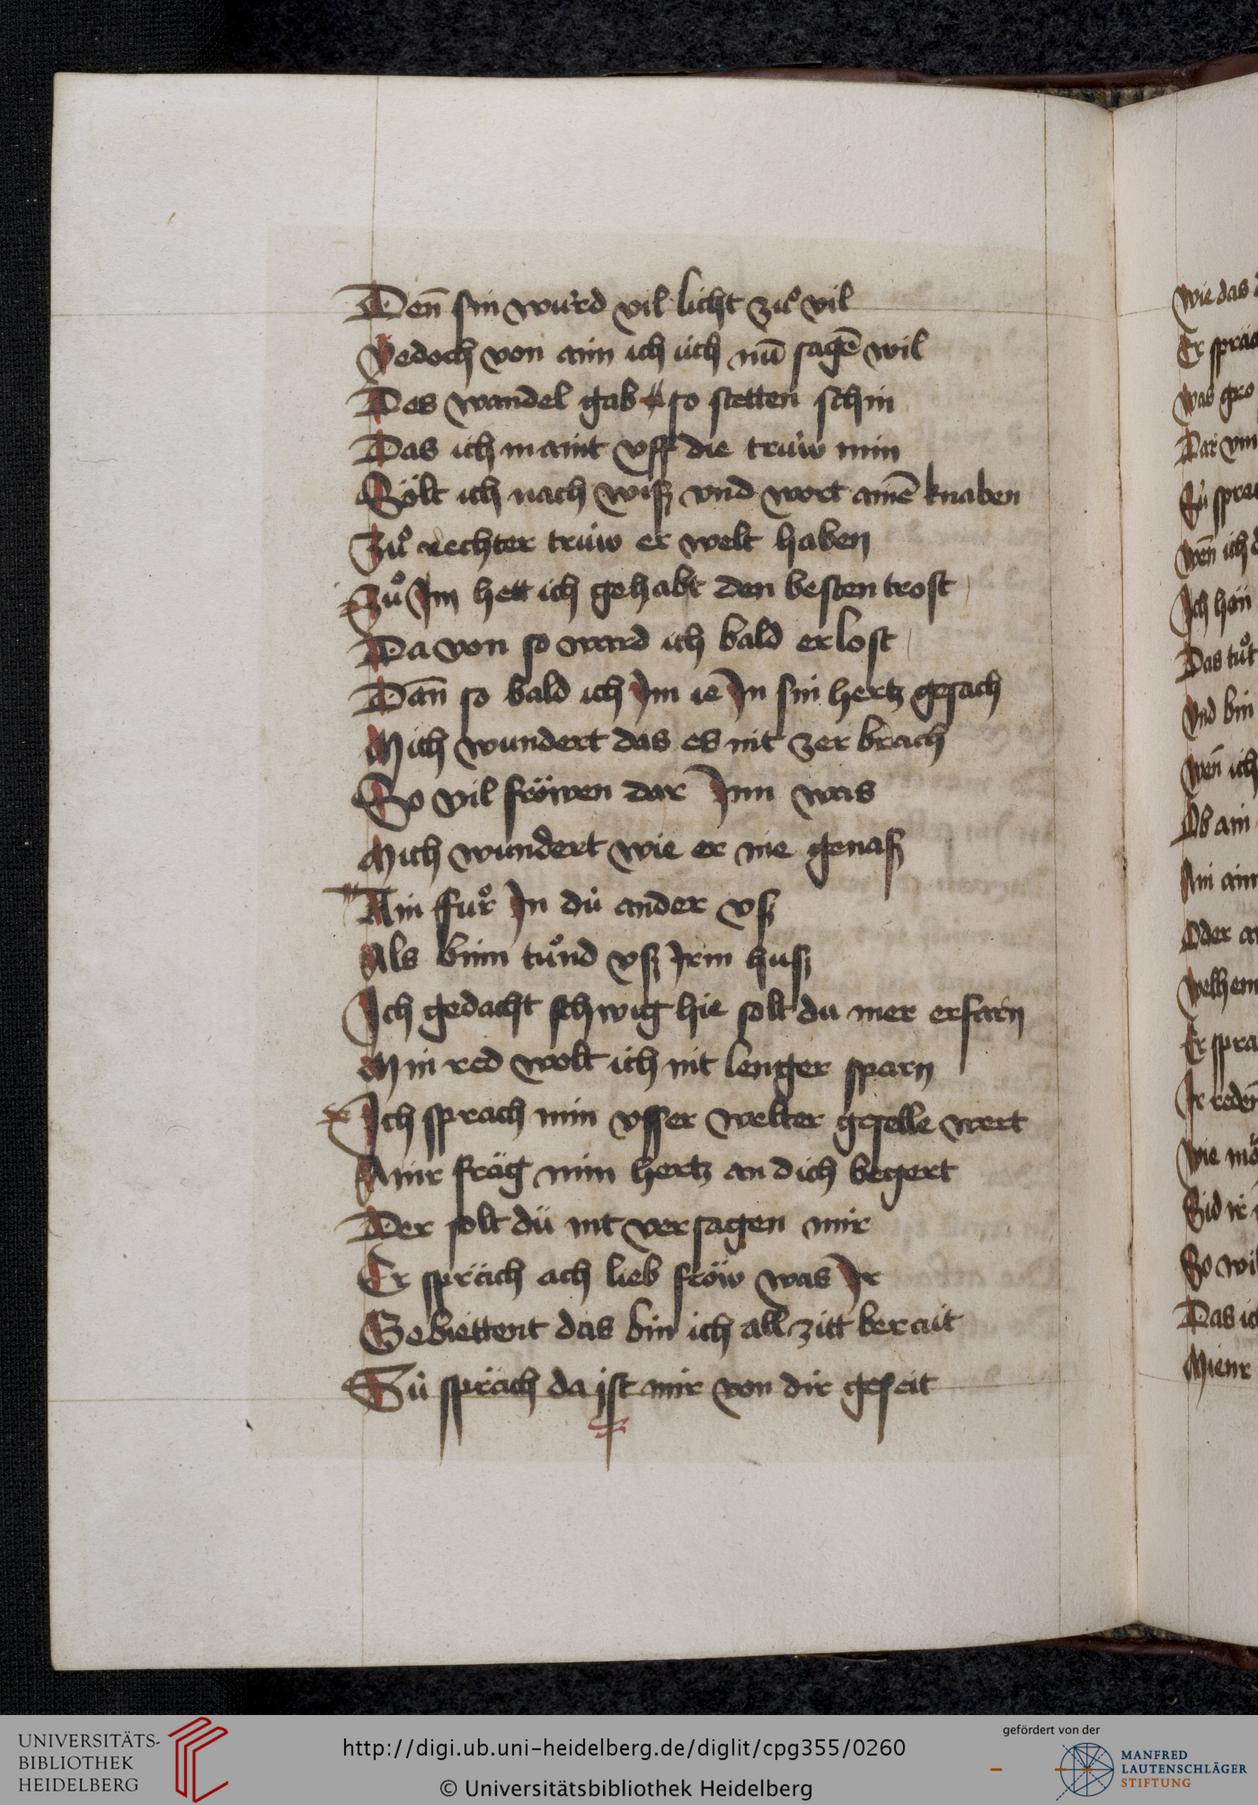 Den̄ sin wúrd vil licht zuͦ vil
Yedoch von aim ich úch nū sagē wil
Des wandel gab so stetten schin
Das ich maint vff die trúw min
Sölt ich nach wisß vnd wort ainē knaben
Zuͦ rechter trúw er welt haben
Zuͦ Im hett ich gehabt den besten trost
Da von so ward ich bald erlost
Dan̄ so bald ich Im ie In sin hertz gesach
Mich wundert das es nit zer brach
So vil fröwen dar Inn was
Mich wundert wie er nie genasß
Ain fuͦr In dú ander vsß
Als binn tuͦnd vsß Irm husß
Ich gedacht schwig hie solt du mer erfarn
Min red wolt ich nit lenger sparn
Ich sprach min vsser welter geselle wert
Ainr fräg min hertz an dich begert
Der solt dü nit versagen mir
Er spräch ach lieb fröw was Ir
Gebiettent das bin ich all zitt berait
Sú spräch da ist mir von dir geseit
wie das
Er spräc
was gro
Dar vm
Sú sprac
wen̄ ich
Ich hän
Das tuͦt
vnd bin
wen̄ ich
Ob ain
Ain ain
Oder a
welhem
Er spra
Ir reden
wie mö
Sid ir
So wil
Das ic
Mienr
UNIVERSITÄTS-
BIBLIOTHEK
HEIDELBERG
http://digi.ub.uni-heidelberg.de/diglit/cpg355/0260
© Universitätsbibliothek Heidelberg
gefördert von der
MANFRED
LAUTENSCHLÄGER
STIFTUNG